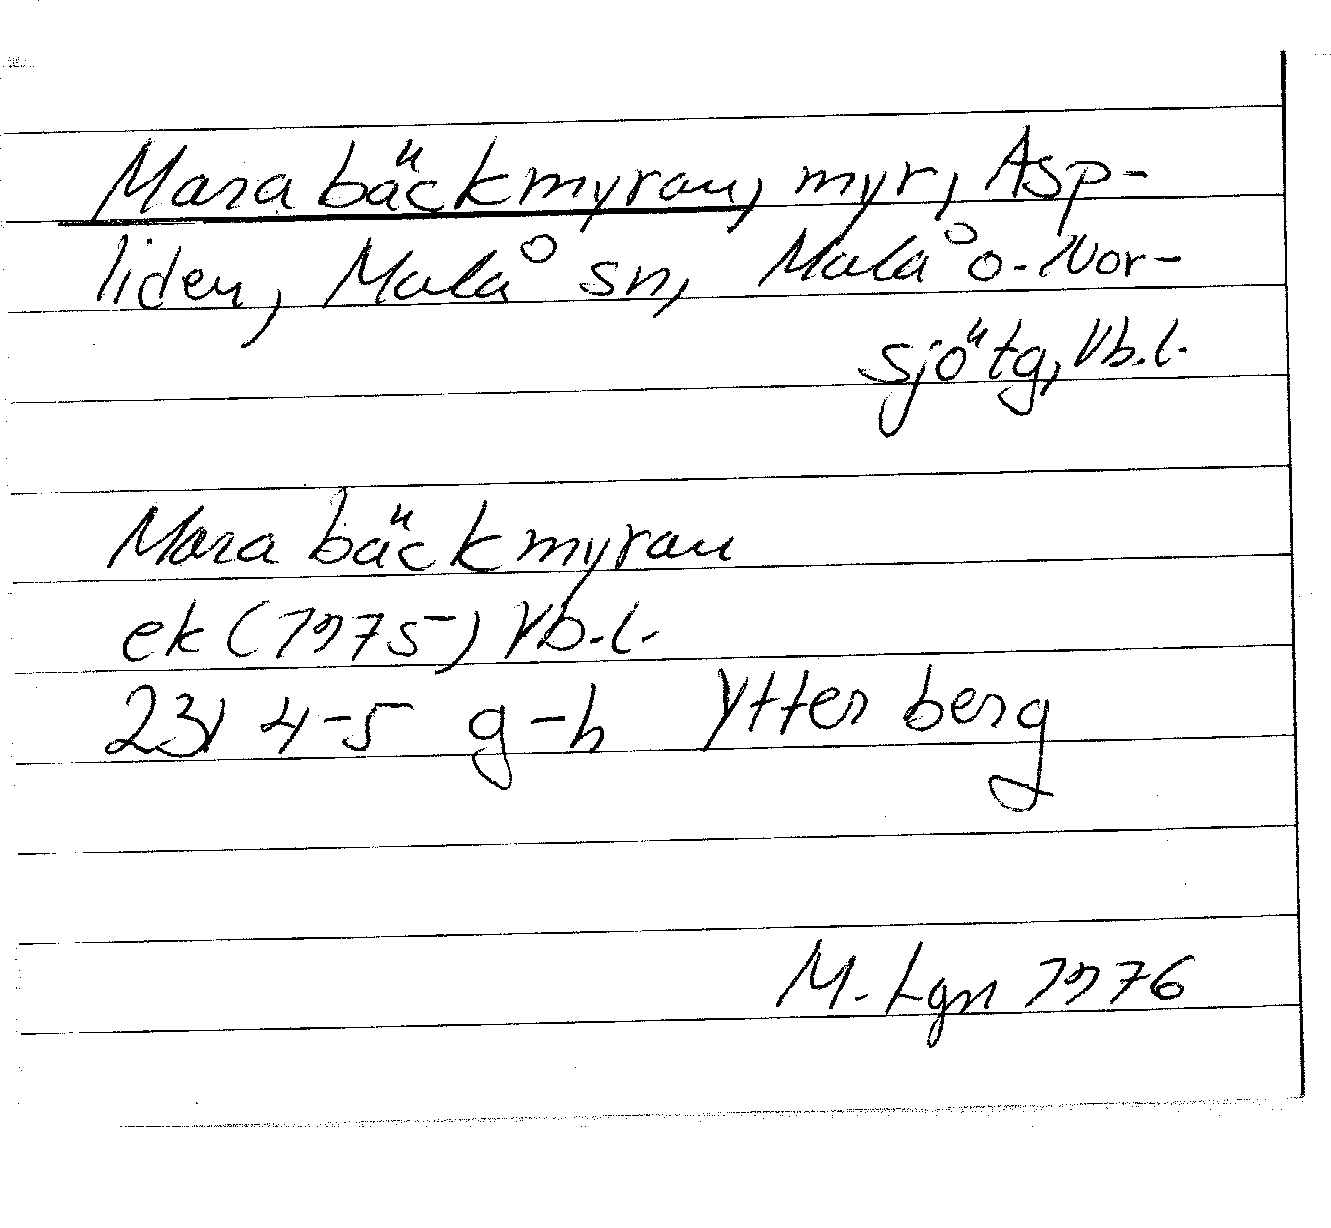 Marabäckmyran, myr, Asp-
liden, Malå sn, Malå o. Nor-
sjö tg, Vb.l.
Marabäckmyran
ek (1975) Vb.l.
23I 4-5 g-h Ytterberg
M. Lgn 1976